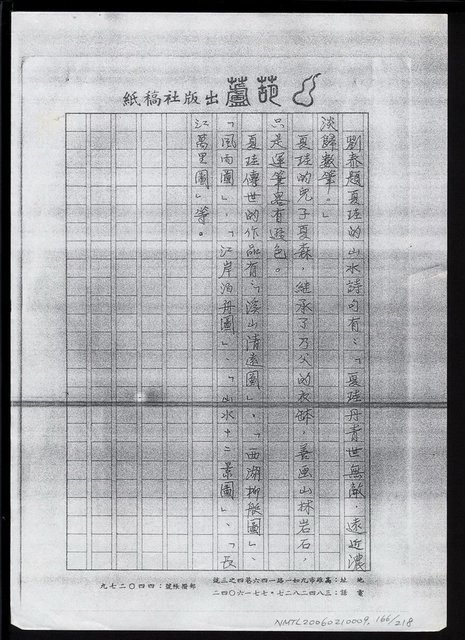 紙稿社版出蘆葩
劉泰題夏珪的山水詩句有：「夏珪丹青世無敵，遠近濃
淡歸數筆。」
夏珪的兒子夏森，繼承了乃父的衣缽，善画山林岩石，
只是運筆畧有遜色。
夏珪傳世的作品有：「溪山清遠圖」、「西湖柳艇圖」、
「風雨圖」、「江岸泊舟圖」、「山水十二景圖」、「長
江萬里圖」等。
號三之四巷六四一路一如九市雄高：址地
〇四二六一七七・七二八二四八三：話電
九七二〇四四：號帳撥郵
NMTL20060210009, 166/218